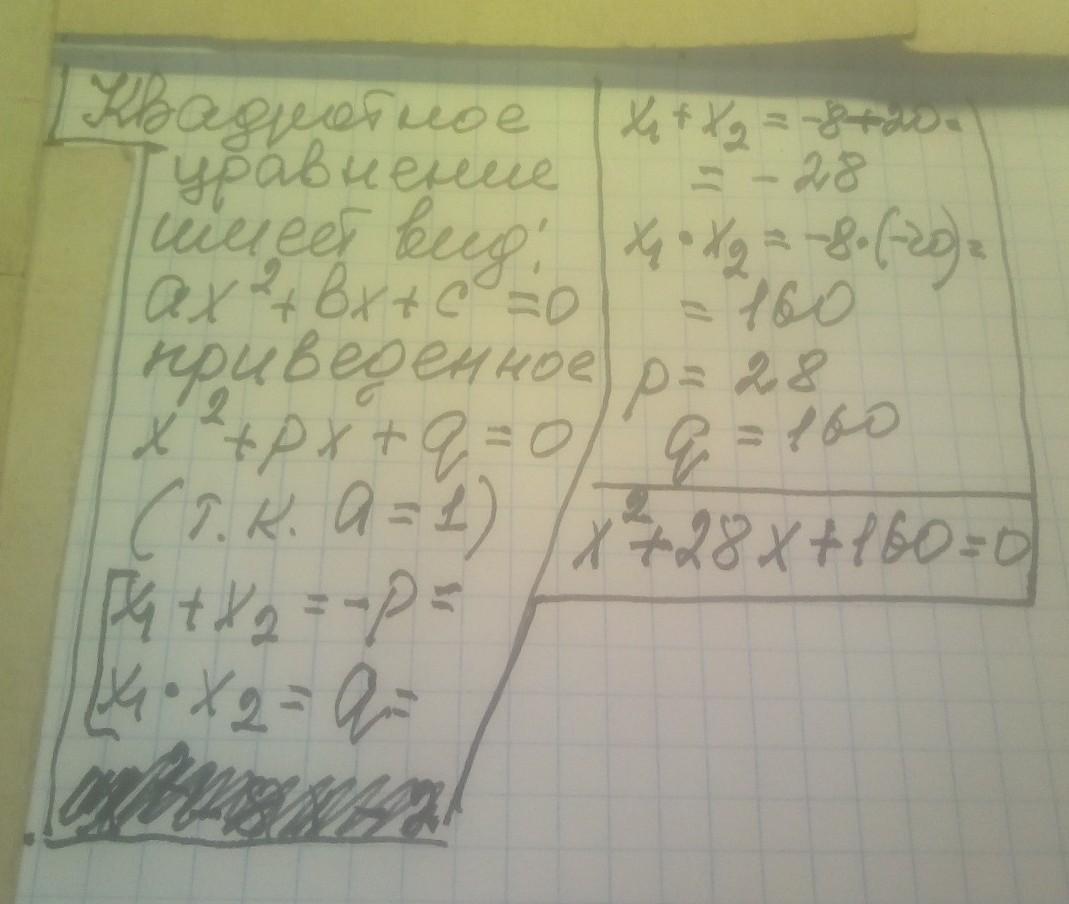 Квадратное
уравнение
имеет вид:
ax² + bx + c = 0
приведенное
x² + px + q = 0
(т.к. a = 1)
x₁ + x₂ = -p =
x₁ · x₂ = q =
x₁ + x₂ = -8+20=
= -28
x₁ · x₂ = -8·(-20)=
= 160
p = 28
q = 160
x² + 28x + 160 = 0